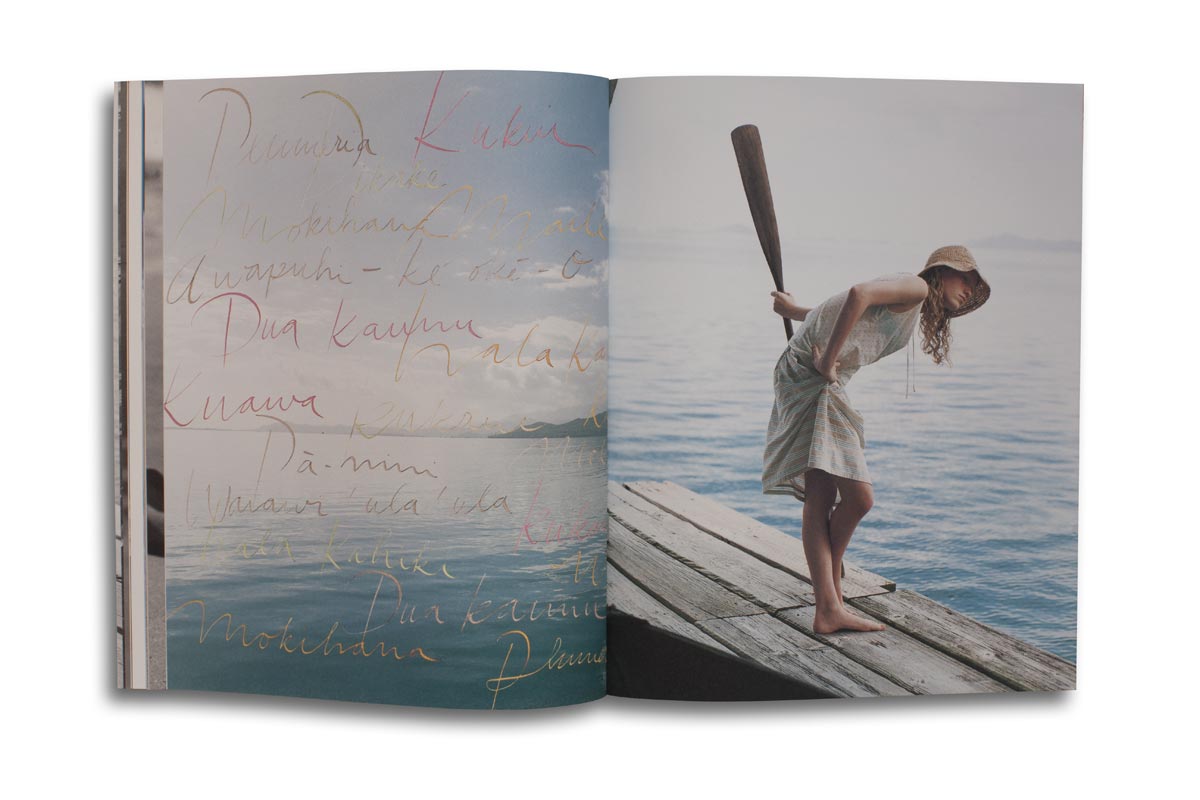 Plumeria Kukui
Pikake
Mokihana Maile
Awapuhi-ke oke-o
Pua Kaumu
hala ka
Kuawa
Pukane k
Pā-nini
Waiawi 'ula 'ula
Hala Kahiki
Pua Kaumu
Mokihana Plume